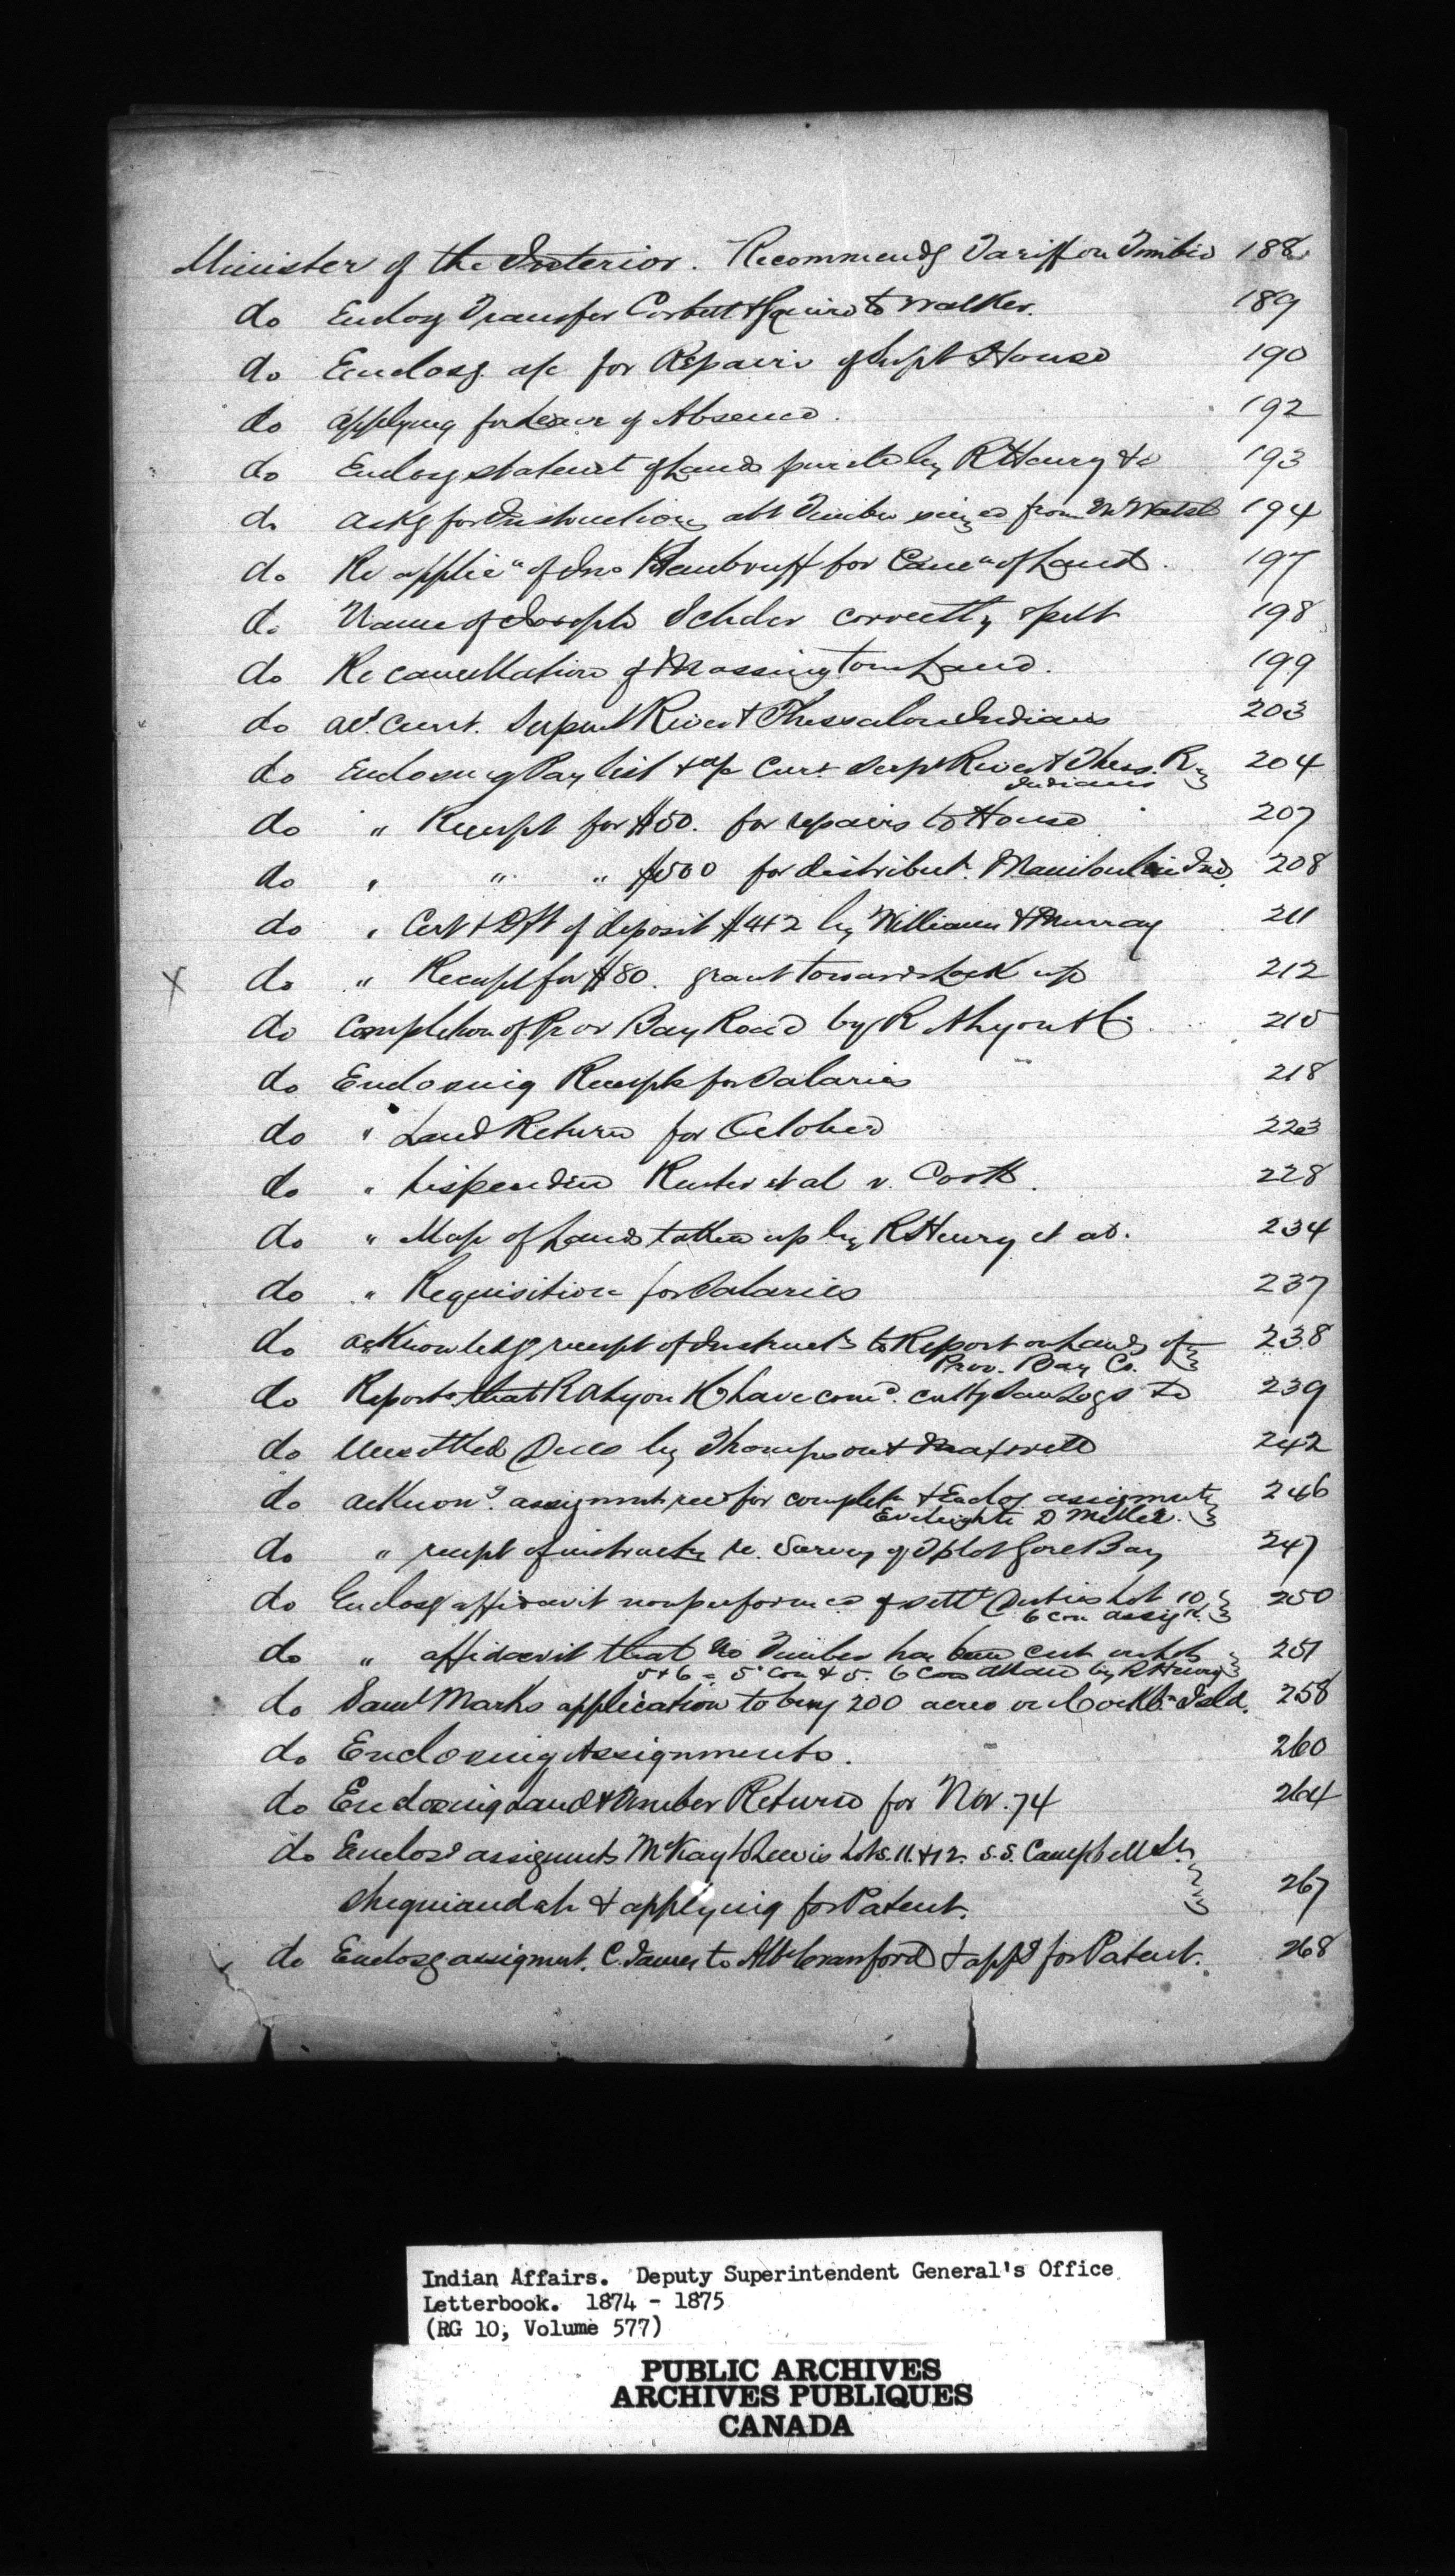 Minister of the Interior. Recommendg Tariff on Timber 188
do Enclosg Transfer Corbett & Squire to Walker. 189
do Enclosg a/c for Repairs of Supt House 190
do applying for Leave of Absence. 192
do Enclosg statemt of Lands purchd by R Henry &c 193
do askg for Instructions abt Timber seized from 194
do Re applicn of Jno for Cancn of Land. 197
do Name of Joseph correctly spelt 198
do Re cancellation of Massington Land. 199
do Serpent River & Thessalon Indians 203
do Enclosing Pay list & a/c Curt Serpt River & Thess. R. 204
Indians
do " Receipt for $50. for repairs to House 207
do " " " $500 for distribut. Manitoulin Ind. 208
do " Cert & Dft of deposit $412 by Williams & Murray 211
X do " Receipt for $80. grant towards Lock up 212
do Completion of Prov Bay Road by R A Lyon & Co. 215
do Enclosing Receipts for Salaries 218
do " Land Return for October 223
do " Lispendens et al v. 228
do " Map of Lands taken up by R Henry et al. 234
do " Requisition for Salaries 237
do acknowledg receipt of Instructns to Report on Lands of 238
Prov. Bay Co.
do Reports that R A Lyon & Co have comd. cuttg Saw Logs &c 239
do Unsettled Dues by Thompson & Maxwell 242
do acknowg. assignmts recd for completn & Enclosg assignmts 246
D Miller.
do " receipt of instructs re. Survey of T plot Gore Bay 247
do Enclosg affidavit nonperformce of settt Duties Lot 10, 250
6 con assigk.
do " affidavit that no Timber has been cut on Lots 251
5 & 6 = 5' Con & 5. 6 Con by R Henry
do Saml Marks application to buy 200 acres on Cockbn Isld. 258
do Enclosing Assignments. 260
do Enclosing Land & Timber Returns for Nov. 74 264
do Enclosg assignmts McKay to Lewis Lots. 11. & 12. S.S. Campbell St.
Sheguiandah & applying for Patent. 267
do Enclosg assigmnt. C. James to Albt Cranford & appg for Patent. 268
Indian Affairs. Deputy Superintendent General's Office
Letterbook. 1874 - 1875
(RG 10, Volume 577)
PUBLIC ARCHIVES
ARCHIVES PUBLIQUES
CANADA